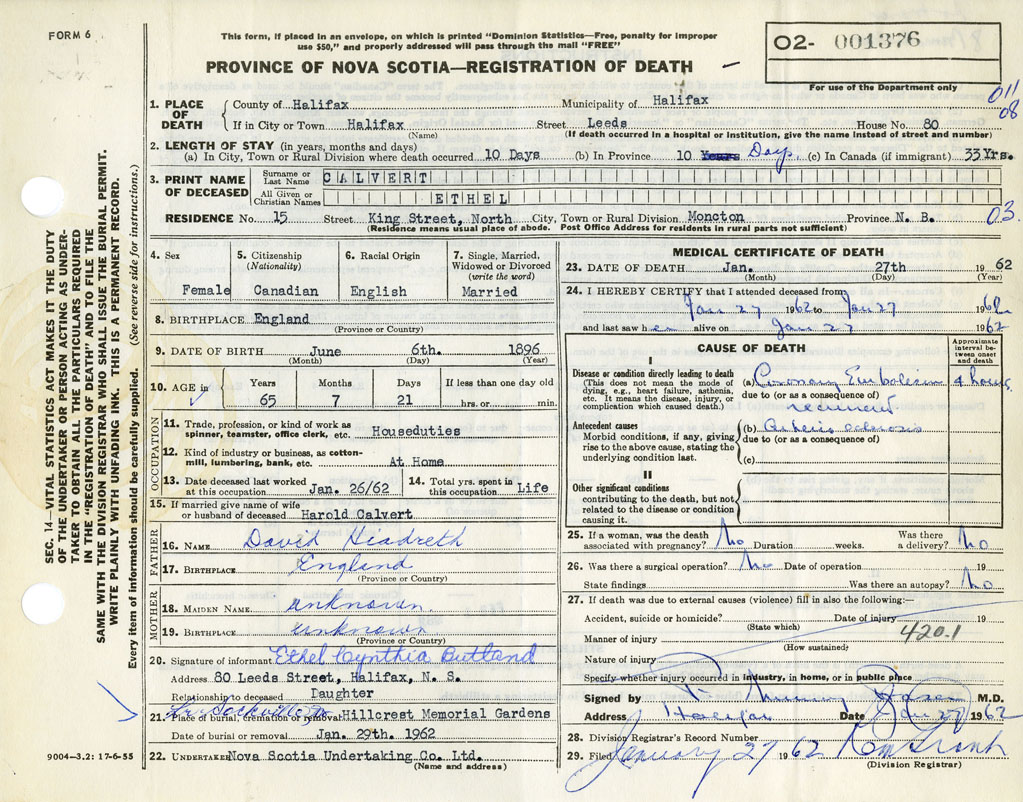 FORM 6
This form, if placed in an envelope, on which is printed "Dominion Statistics—Free, penalty for improper
use $50," and properly addressed will pass through the mail "FREE"
PROVINCE OF NOVA SCOTIA—REGISTRATION OF DEATH
O2- 001376
For use of the Department only
011
08
1. PLACE OF DEATH
County of Halifax Municipality of Halifax
If in City or Town Halifax Street Leeds House No. 80
(Name) (If death occurred in a hospital or institution, give the name instead of street and number)
2. LENGTH OF STAY (in years, months and days)
(a) In City, Town or Rural Division where death occurred 10 Days (b) In Province 10 Years Days (c) In Canada (if immigrant) 33 Yrs.
3. PRINT NAME OF DECEASED
Surname or Last Name CALVERT
All Given or Christian Names ETHEL
RESIDENCE No. 15 Street King Street, North City, Town or Rural Division Moncton Province N. B. 03.
(Residence means usual place of abode. Post Office Address for residents in rural parts not sufficient)
4. Sex
Female
5. Citizenship
(Nationality)
Canadian
6. Racial Origin
English
7. Single, Married,
Widowed or Divorced
(write the word)
Married
8. BIRTHPLACE England
(Province or Country)
9. DATE OF BIRTH June 6th. 1896
(Month) (Day) (Year)
10. AGE in
Years Months Days If less than one day old
65 7 21 hrs. or min.
OCCUPATION
11. Trade, profession, or kind of work as
spinner, teamster, office clerk, etc. Houseduties
12. Kind of industry or business, as cotton-
mill, lumbering, bank, etc. At Home
13. Date deceased last worked
at this occupation Jan. 26/62
14. Total yrs. spent in
this occupation Life
15. If married give name of wife
or husband of deceased Harold Calvert
FATHER
16. NAME David Hiadreth
17. BIRTHPLACE England
(Province or Country)
MOTHER
18. MAIDEN NAME unknown.
19. BIRTHPLACE unknown
(Province or Country)
20. Signature of informant Ethel Cynthia Butland
Address 80 Leeds Street, Halifax, N. S.
Relationship to deceased Daughter
21. Place of burial, cremation or removal Hillcrest Memorial Gardens
Date of burial or removal Jan. 29th. 1962
22. UNDERTAKER Nova Scotia Undertaking Co. Ltd.
(Name and address)
9004—3.2: 17-6-55
SEC. 14—VITAL STATISTICS ACT MAKES IT THE DUTY
OF THE UNDERTAKER OR PERSON ACTING AS UNDER-
TAKER TO OBTAIN ALL THE PARTICULARS REQUIRED
IN THE "REGISTRATION OF DEATH" AND TO FILE THE
SAME WITH THE DIVISION REGISTRAR WHO SHALL ISSUE THE BURIAL PERMIT.
WRITE PLAINLY WITH UNFADING INK. THIS IS A PERMANENT RECORD.
Every item of information should be carefully supplied. (See reverse side for instructions.)
MEDICAL CERTIFICATE OF DEATH
23. DATE OF DEATH Jan. 27th 1962
(Month) (Day) (Year)
24. I HEREBY CERTIFY that I attended deceased from
Jan 27 1962 to Jan 27 1962
and last saw her alive on Jan 27 1962
CAUSE OF DEATH
Approximate
interval be-
tween onset
and death
I
Disease or condition directly leading to death
(This does not mean the mode of
dying, e.g., heart failure, asthenia,
etc. It means the disease, injury, or
complication which caused death.)
(a) Coronary Embolism 4 hours
due to (or as a consequence of)
recurrent
Antecedent causes
Morbid conditions, if any, giving
rise to the above cause, stating the
underlying condition last.
(b) Arterio sclerosis
due to (or as a consequence of)
(c)
II
Other significant conditions
contributing to the death, but not
related to the disease or condition
causing it.
25. If a woman, was the death
associated with pregnancy? No Duration weeks. Was there
a delivery? No
26. Was there a surgical operation? No Date of operation 19
State findings Was there an autopsy? No
27. If death was due to external causes (violence) fill in also the following:—
Accident, suicide or homicide? Date of injury 19
(State which)
420.1
Manner of injury
(How sustained?)
Nature of injury
Specify whether injury occurred in industry, in home, or in public place
Signed by M.D.
Address Halifax Date Jan 27 1962
28. Division Registrar's Record Number
29. Filed January 27 1962
(Division Registrar)